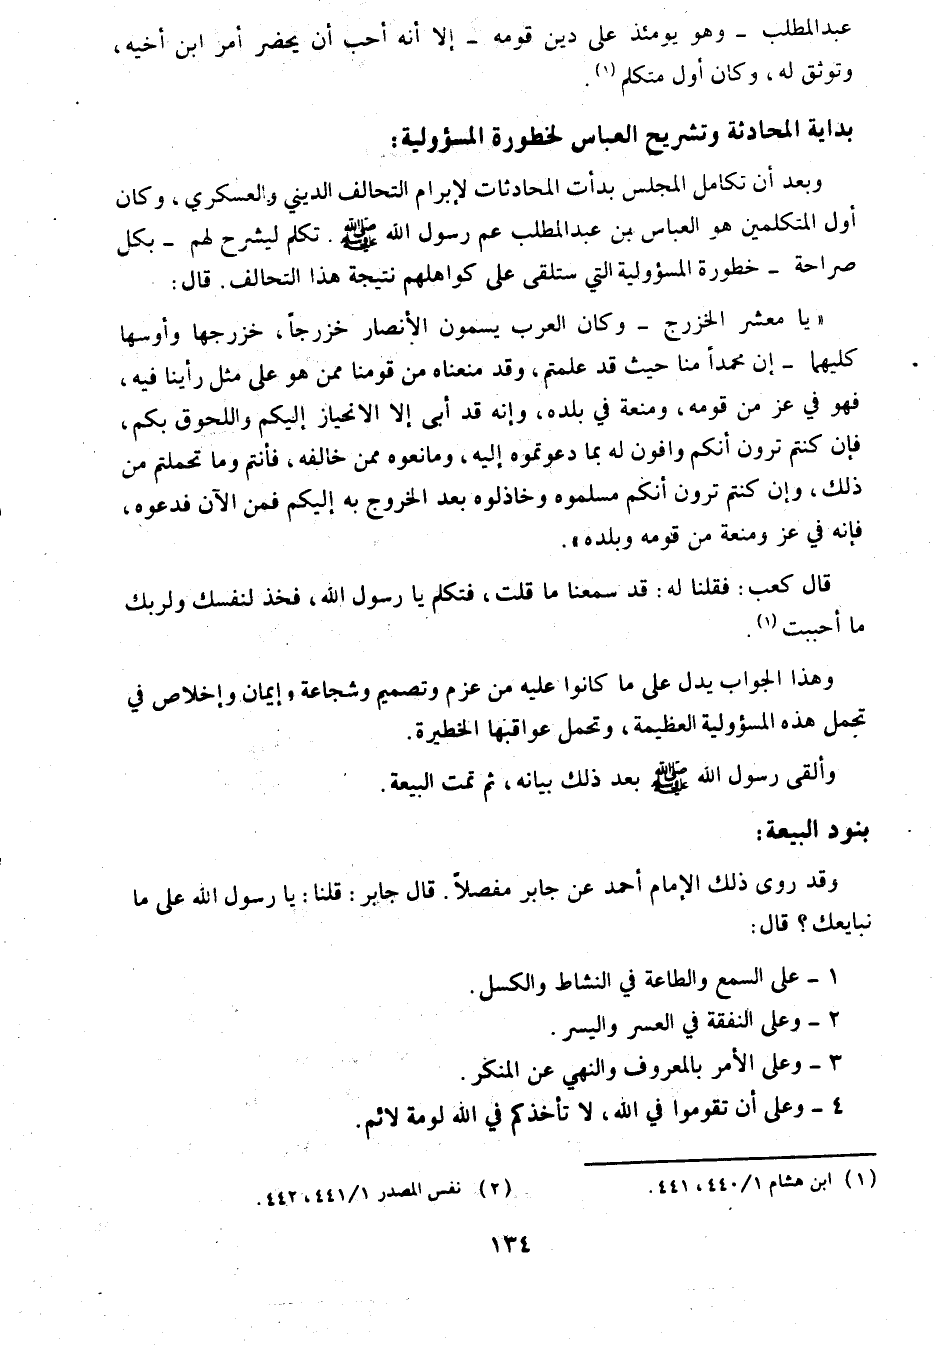 عبدالمطلب ـ وهو يومئذ على دين قومه ـ إلا أنه أحب أن يحضر أمر ابن أخيه،
وتوثق له، وكان أول متكلم (١).
بداية المحادثة وتشريح العباس لخطورة المسؤولية:
وبعد أن تكامل المجلس بدأت المحادثات لإبرام التحالف الديني والعسكري، وكان
أول المتكلمين هو العباس بن عبدالمطلب عم رسول الله ﷺ. تكلم ليشرح لهم ـ بكل
صراحة ـ خطورة المسؤولية التي ستلقى على كواهلهم نتيجة هذا التحالف. قال:
«يا معشر الخزرج ـ وكان العرب يسمون الأنصار خزرجاً، خزرجها وأوسها
كليهما ـ إن محمداً منا حيث قد علمتم، وقد منعناه من قومنا ممن هو على مثل رأينا فيه،
فهو في عز من قومه، ومنعة في بلده، وإنه قد أبى إلا الانحياز إليكم واللحوق بكم،
فإن كنتم ترون أنكم وافون له بما دعوتموه إليه، ومانعوه ممن خالفه، فأنتم وما تحملتم من
ذلك، وإن كنتم ترون أنكم مسلموه وخاذلوه بعد الخروج به إليكم فمن الآن فدعوه،
فإنه في عز ومنعة من قومه وبلده».
قال كعب: فقلنا له: قد سمعنا ما قلت، فتكلم يا رسول الله، فخذ لنفسك ولربك
ما أحببت (١).
وهذا الجواب يدل على ما كانوا عليه من عزم وتصميم وشجاعة وإيمان وإخلاص في
تحمل هذه المسؤولية العظيمة، وتحمل عواقبها الخطيرة.
وألقى رسول الله ﷺ بعد ذلك بيانه، ثم تمت البيعة.
بنود البيعة:
وقد روى ذلك الإمام أحمد عن جابر مفصلاً. قال جابر: قلنا: يا رسول الله على ما
نبايعك؟ قال:
١ ـ على السمع والطاعة في النشاط والكسل.
٢ ـ وعلى النفقة في العسر واليسر.
٣ ـ وعلى الأمر بالمعروف والنهي عن المنكر.
٤ ـ وعلى أن تقوموا في الله، لا تأخذكم في الله لومة لائم.
(١) ابن هشام ٤٤٠/١، ٤٤١. (٢) نفس المصدر ٤٤١/١، ٤٤٢.
١٣٤